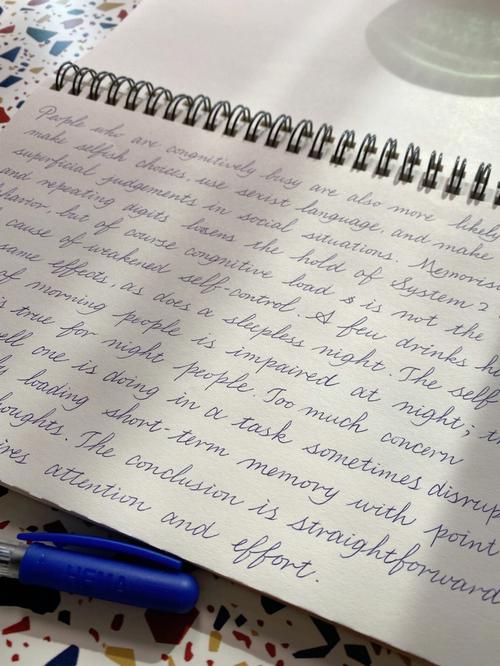 People who are congnitively busy are also more likely
make selfish choices, use sexist language, and make
superficial judgements in social situations. Memorisi
and repeating digits losens the hold of System 2
behavior, but of course congnitive load is is not the
cause of weakened self-control. A few drinks ha
same effects, as does a sleepless night. The self-
of morning people is impaired at night; t
is true for night people. Too much concern
ell one is doing in a task sometimes disrup
ly loading short-term memory with point
houghts. The conclusion is straightforward
ires attention and effort.